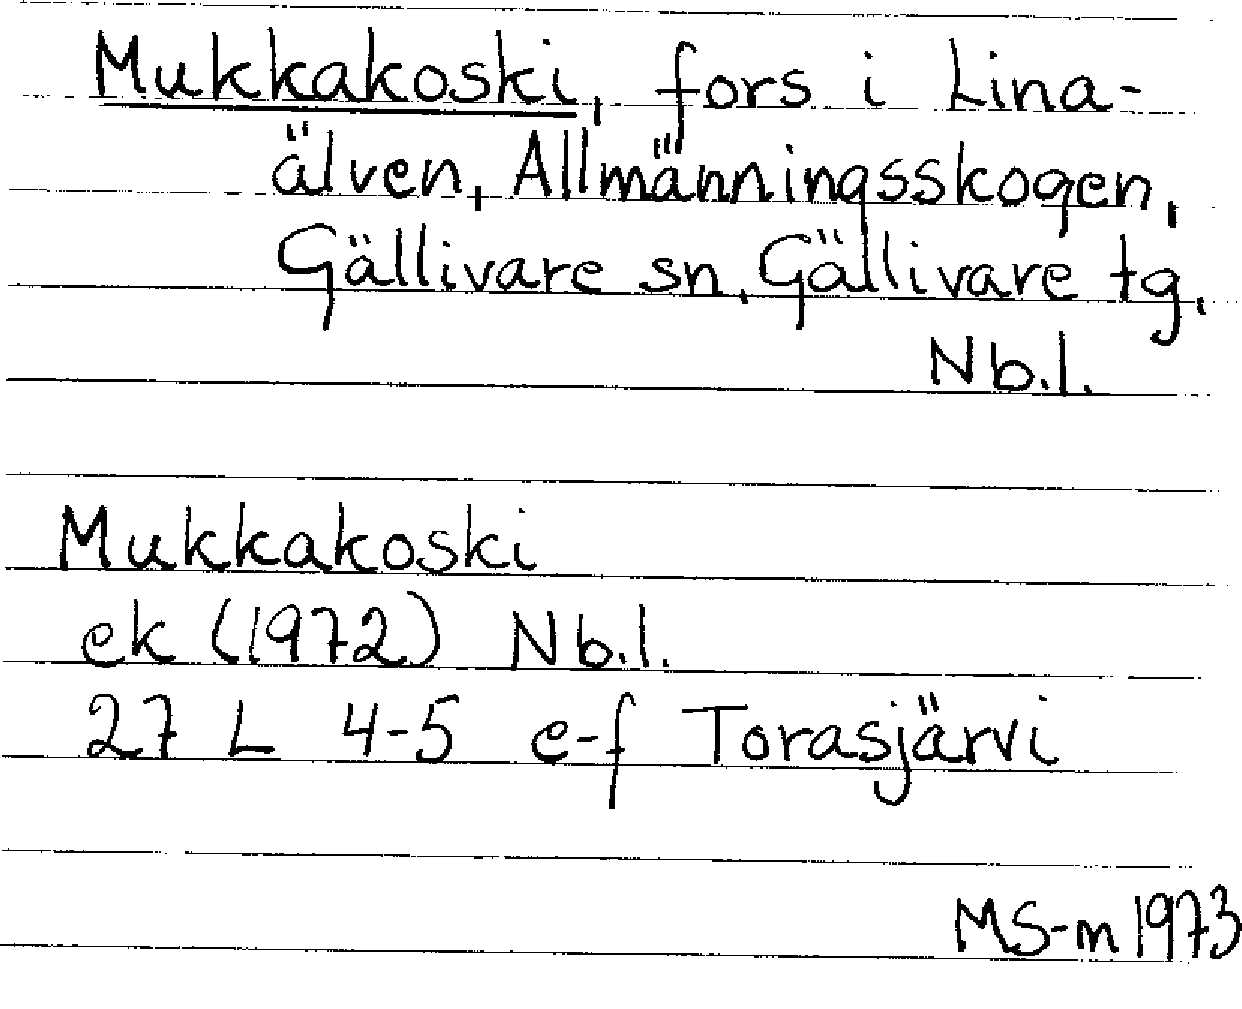 Mukkakoski, fors i Lina-
älven, Allmänningsskogen,
Gällivare sn, Gällivare tg,
Nb.l.
Mukkakoski
ek (1972) Nb.l.
27 L 4-5 e-f Torasjärvi
MS-m 1973